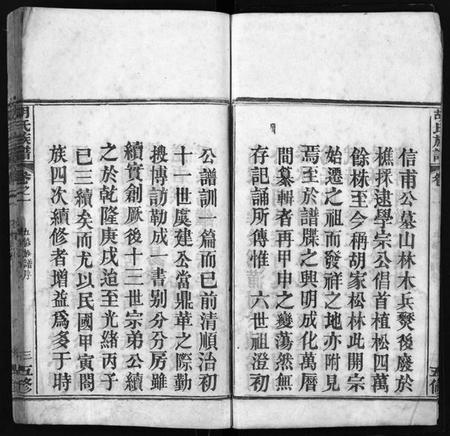 胡氏族譜
卷
五修
信甫公墓山林木兵燹後廢於
樵採建學宗公倡首植松四萬
餘株至今稱胡家松林此開宗
始遷之祖而發祥之地亦附見
焉至於譜牒之興明成化萬曆
間纂輯者再甲申之變蕩然無
存記誦所傳惟 六世祖澄初
公譜訓一篇而已前清順治初
十一世虞建公當鼎革之際勤
搜博訪勒成一書別分分房雖
續實創厥後十三世宗弟公續
之於乾隆庚戌迨至光緒丙子
已三續矣而尤以民國甲寅閤
族四次續修者增益爲多于時
胡氏族譜
卷之一
三
五修